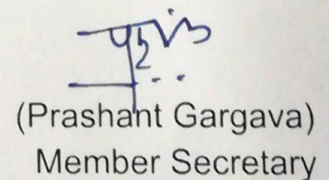 (Prashant Gargava)
Member Secretary